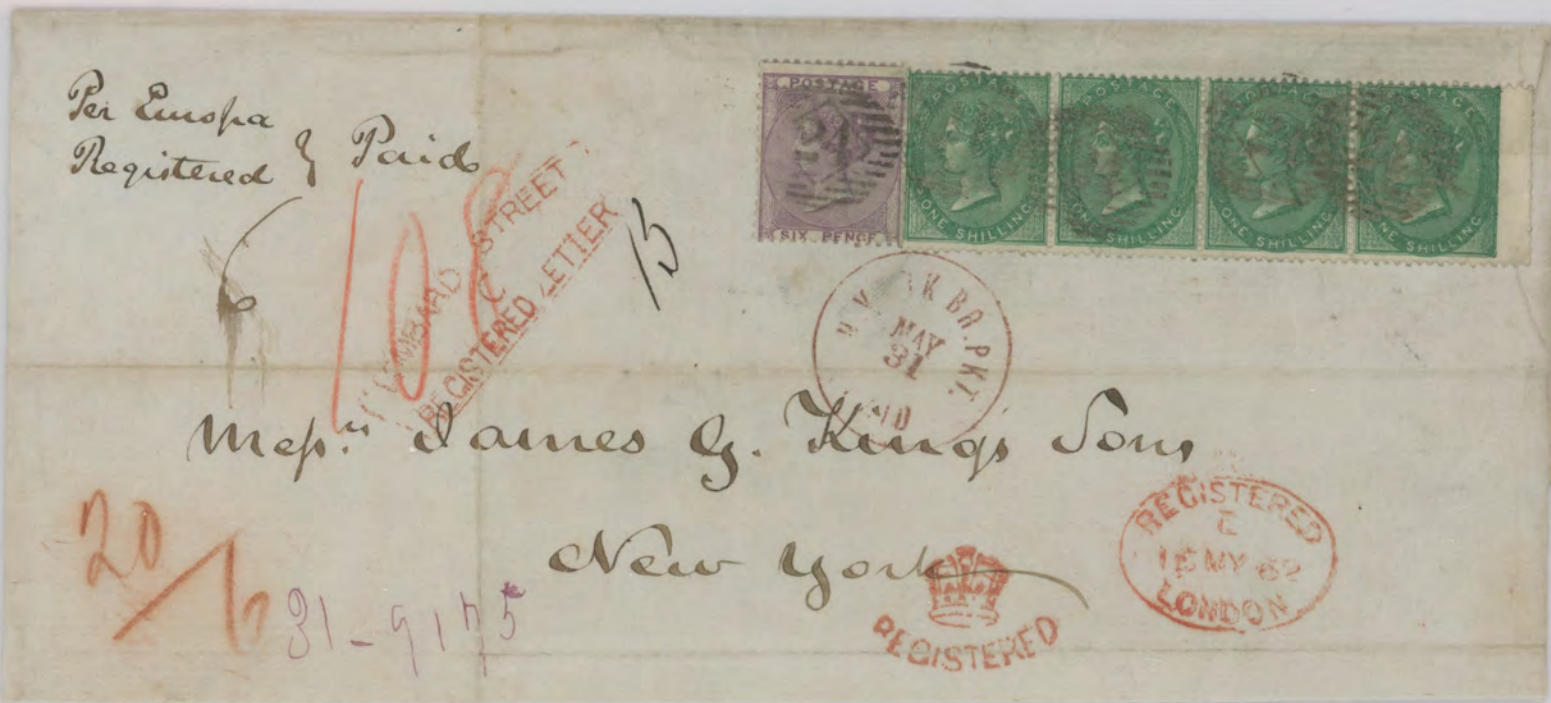 Per Europa
Registered & Paid
6
108
LOMBARD STREET
C
REGISTERED LETTER
15
POSTAGE
SIX PENCE
POSTAGE
ONE SHILLING
POSTAGE
ONE SHILLING
POSTAGE
ONE SHILLING
POSTAGE
ONE SHILLING
N. YORK BR. PKT.
MAY
31
PAID
Messrs. James G. King's Sons
New York
20/6
31-9175
REGISTERED
REGISTERED
15 MY 62
LONDON